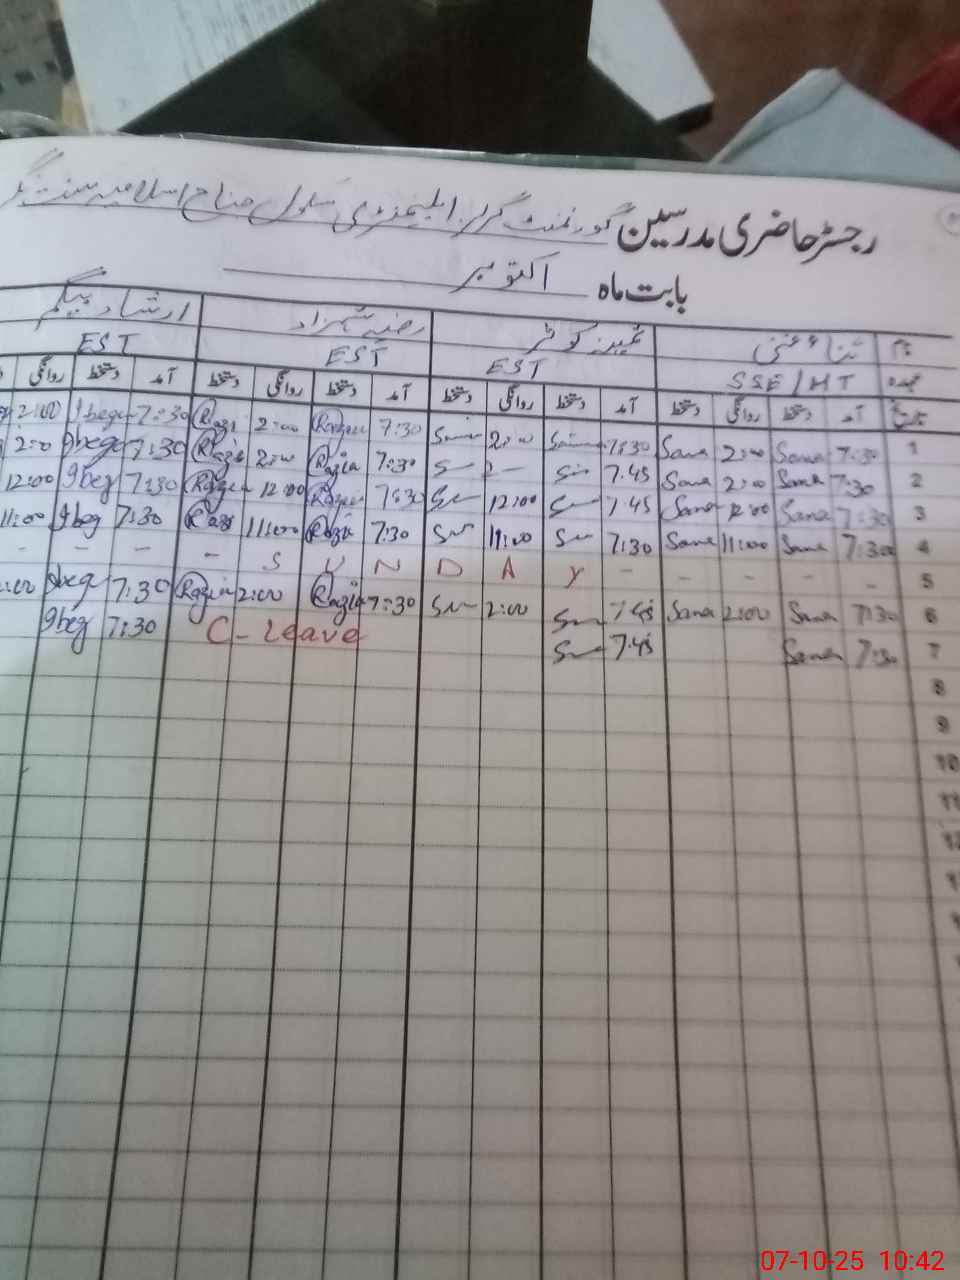 رجسٹر حاضری مدرسین گورنمنٹ گرلز ایلیمنٹری سکول جناح اسلامیہ سنت نگر
بابت ماہ اکتوبر
نام ثناء غنی ثمینہ کوثر رضیہ شہزاد ارشاد بیگم
عہدہ SSE/HT EST EST EST
تاریخ آمد دستخط روانگی دستخط آمد دستخط روانگی دستخط آمد دستخط روانگی دستخط آمد دستخط روانگی
1 7:30 Sana 2:00 Sana 7:30 2:00 7:30 Razia 2:00 Razi 7:30 Ibegu 2:00
2 7:30 Sana 2:00 Sana 7.45 2 — 7:30 Razia 2:00 Razia 7:30 Ibegu 2:00
3 7:30 Sana 12:00 Sana 7.45 12:00 7:30 Razia 12:00 Razia 7:30 Ibeg 12:00
4 7:30 Sana 11:00 Sana 7:30 11:00 7:30 Razia 11:00 Razi 7:30 Ibeg 11:00
5 - - - - - S U N D A Y - - - -
6 7:30 Sana 2:00 Sana 7.45 2:00 7:30 Razia 2:00 Razia 7:30 Ibegu 2:00
7 7:30 Sana 7.45 C-Leave 7:30 Ibeg
8
9
10
11
07-10-25 10:42